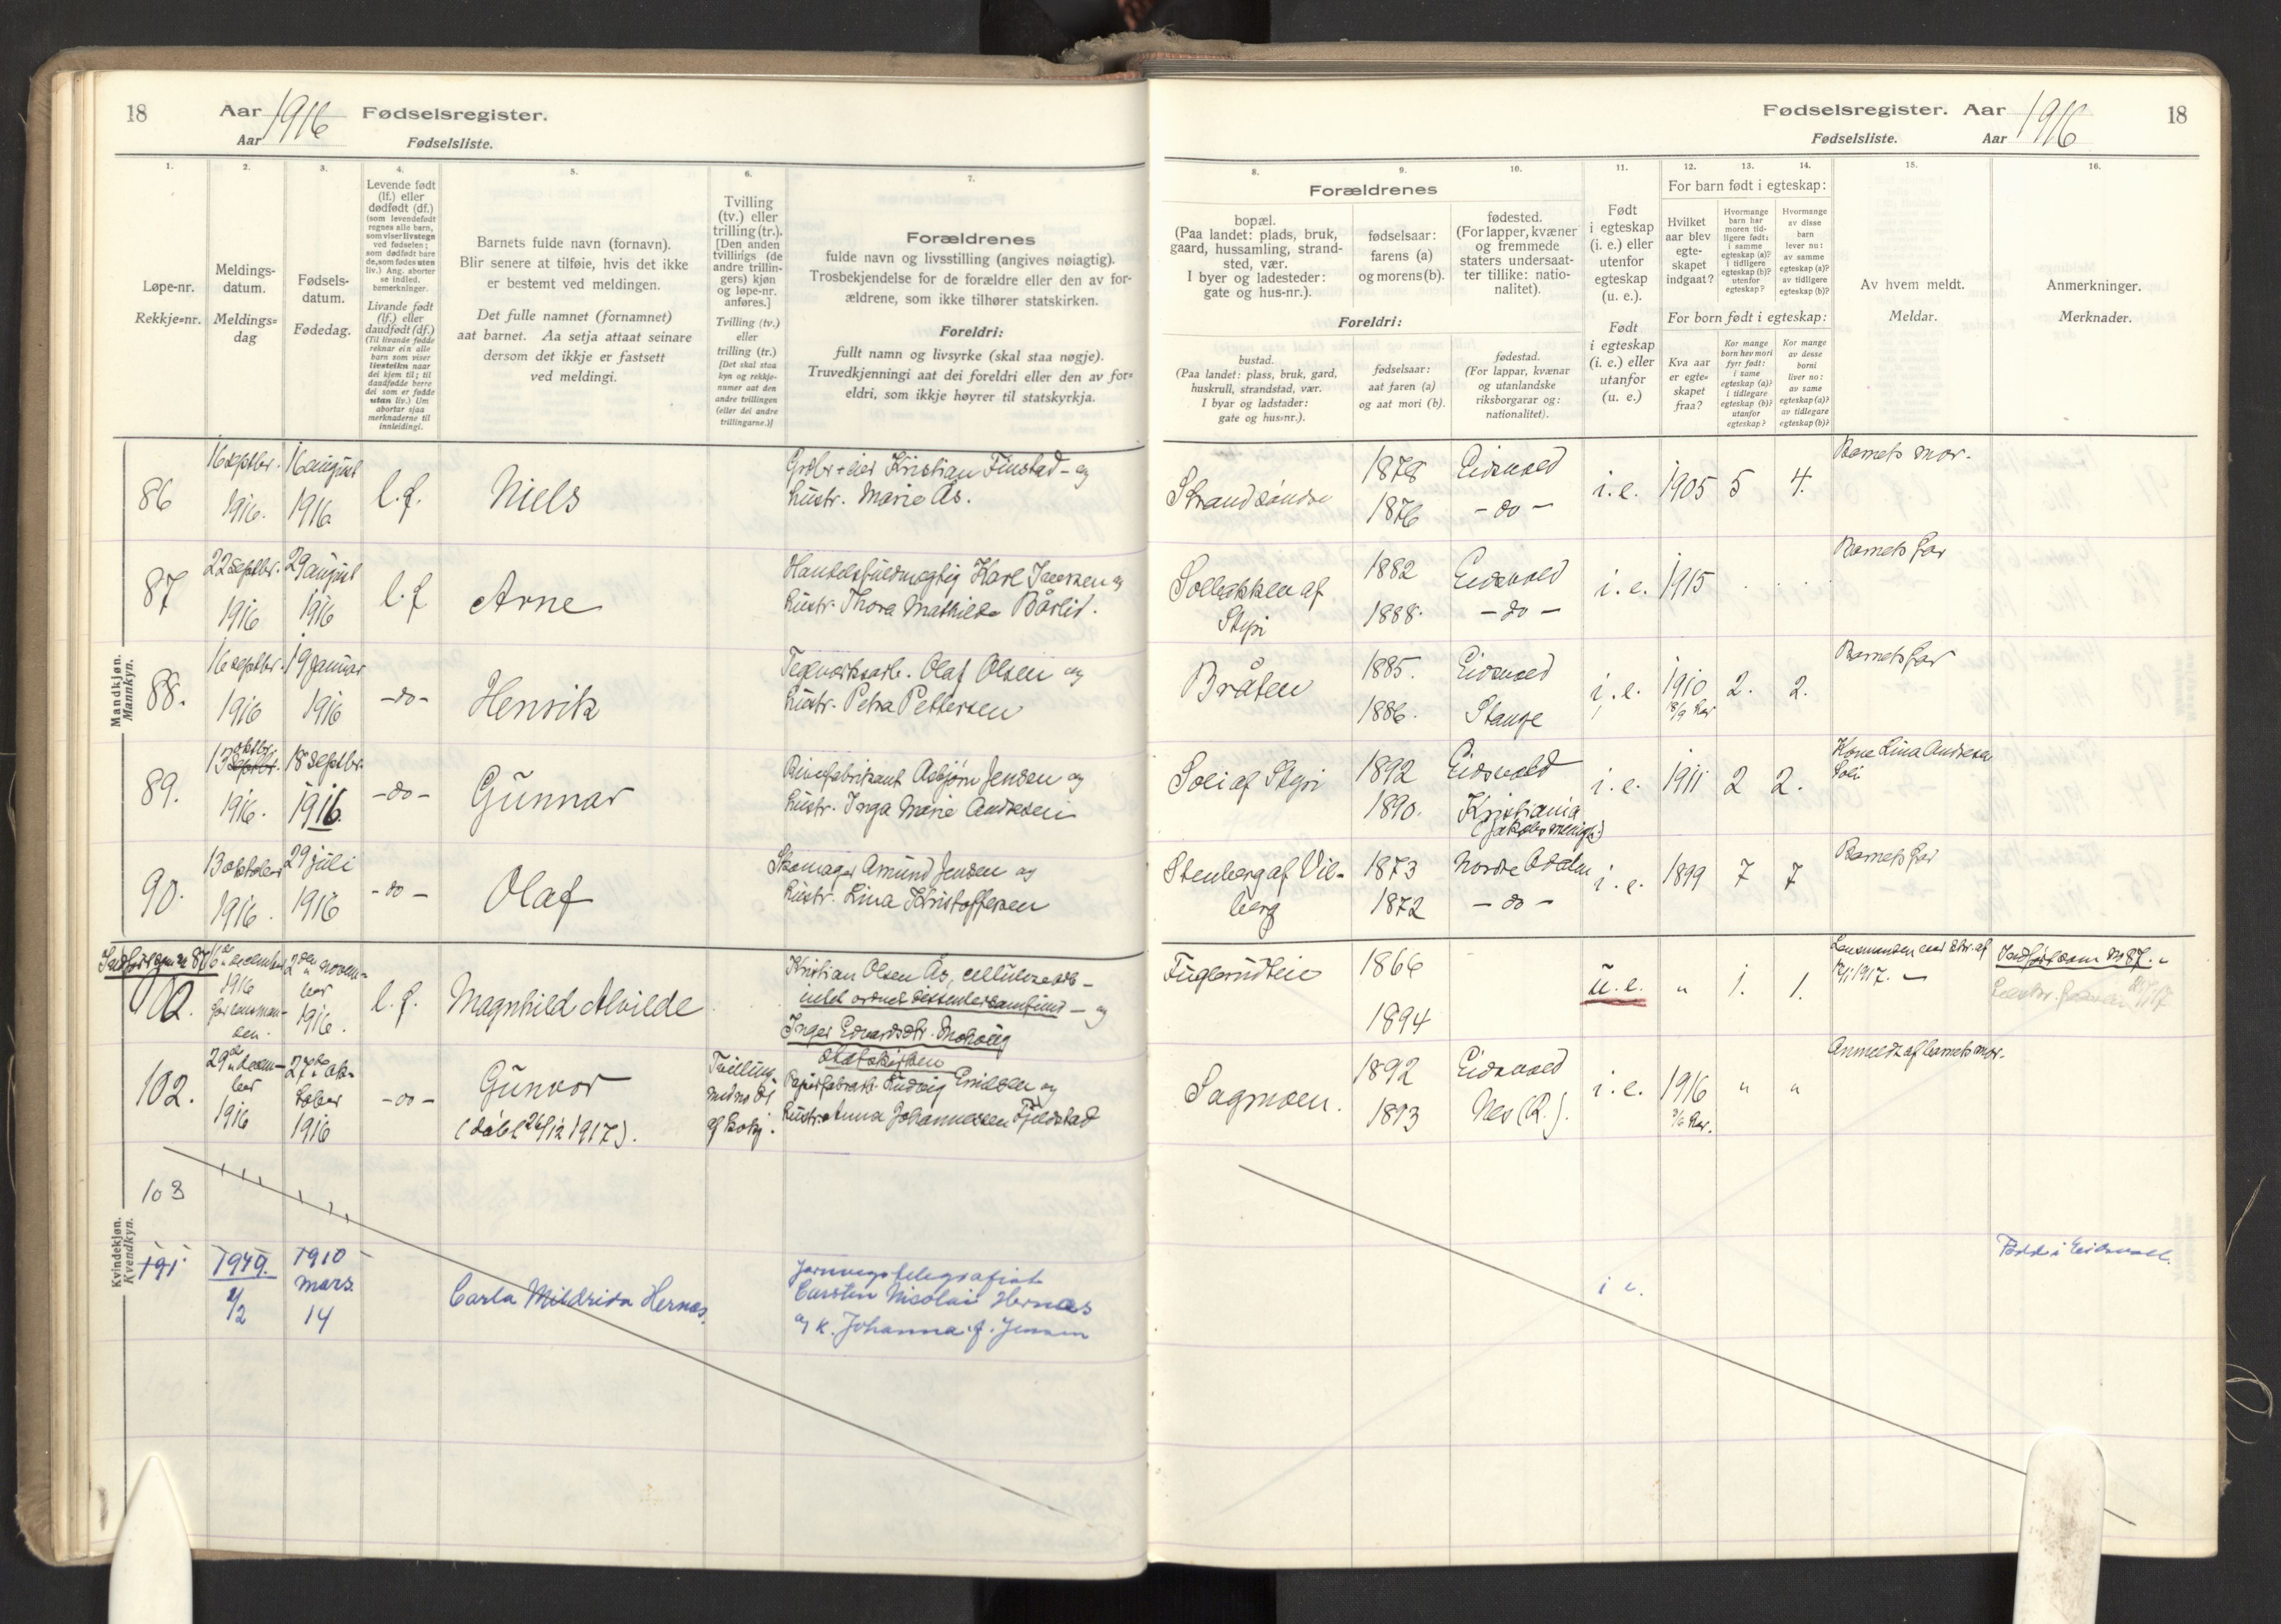 18
Aar 1916 Fødselsregister.
Aar Fødselsliste.
1.
2.
3.
4.
5.
6.
7.
Løpe-nr.
Rekkje=nr.
Meldings-
datum.
Meldings=
dag
Fødsels-
datum.
Fødedag.
Levende født
(lf.) eller
dødfødt (df.)
(som levendefødt
regnes alle barn,
som viser livstegn
ved fødselen;
som dødfødt bare
de, som fødes uten
liv.) Ang. aborter
se indled.
bemerkninger.
Livande født
(lf.) eller
daudfødt (df.)
(Til livande fødde
reknar ein alle
barn som viser
livsteikn naar
dei kjem til; til
daudfødde berre
dei som er fødde
utan liv.) Um
abortar sjaa
merknaderne til
innleidingi.
Barnets fulde navn (fornavn).
Blir senere at tilføie, hvis det ikke
er bestemt ved meldingen.
Det fulle namnet (fornamnet)
aat barnet. Aa setja attaat seinare
dersom det ikkje er fastsett
ved meldingi.
Tvilling
(tv.) eller
trilling (tr.).
[Den anden
tvillings (de
andre trillin-
gers) kjøn
og løpe-nr.
anføres.]
Tvilling (tv.)
eller
trilling (tr.)
[Det skal staa
kyn og rekkje-
numer aat den
andre tvillingen
(eller dei andre
trillingarne.)]
Forældrenes
fulde navn og livsstilling (angives nøiagtig).
Trosbekjendelse for de forældre eller den av for-
ældrene, som ikke tilhører statskirken.
Foreldri:
fullt namn og livsyrke (skal staa nøgje).
Truvedkjenningi aat dei foreldri eller den av for=
eldri, som ikkje høyrer til statskyrkja.
Mandkjøn.
Mannkyn.
86
16 septbr.
1916.
16 august
1916
l.f.
Niels
Grdbr-eier Kristian Finstad - og
hustr. Marie Ås.
87
22 septbr.
1916
29 august
1916
l.f
Arne
Handelsfuldmægtig Karl Jensen og
hustr. Thora Mathilde Bårlid.
88.
16 septbr.
1916
19 januar
1916
-do-
Henrik
Teglverksarb. Olaf Olsen og
hustr. Petra Pettersen
89.
oktbr.
13 septbr.
1916.
18 septbr.
1916.
-do-
Gunnar
Asbjørn Jensen og
hustr. Inga Marie Andresen
90.
13 oktober
1916.
29 juli
1916
-do-
Olaf
Skomager Amund Jensen og
hustr. Lina Kristoffersen
Kvindekjøn.
Kvendkyn.
Indført som nr 87
102.
16de december
1916
for lensman-
den.
2den novem-
ber
1916.
l.f.
Magnhild Alvilde
Kristian Olsen Ås, cellulosearb -
uden ordnet dissentersamfund - og
Inger Edvardsdtr.
statskirken
102.
29de decem-
ber
1916
27de ok-
tober
1916
-do-
Gunvor
(døbt 26/12 1917).
Tvilling
med no
af
Papirfabrarb. Ludvig Emilsen og
hustr. Anna Johannessen Fjeldstad
103
191
1949.
2/2
1910
mars
14
Carla Mildrida Hernæs.
Jernvegstelegrafist
Carsten Nicolai Hernæs
og k. Johanna f. Jensen
Fødselsregister. Aar 1916
18
Fødselsliste. Aar
8.
9.
10.
11.
12.
13.
14.
15.
16.
Forældrenes
bopæl.
(Paa landet: plads, bruk,
gaard, hussamling, strand-
sted, vær.
I byer og ladesteder:
gate og hus-nr.).
fødselsaar:
farens (a)
og morens (b).
fødested.
(For lapper, kvæner
og fremmede
staters undersaat-
ter tillike: natio-
nalitet).
Foreldri:
bustad.
(Paa landet: plass, bruk, gard,
huskrull, strandstad, vær.
I byar og ladstader:
gate og hus=nr.).
fødselsaar:
aat faren (a)
og aat mori (b).
fødestad.
(For lappar, kvænar
og utanlandske
riksborgarar og:
nationalitet).
Født
i egteskap
(i. e.) eller
utenfor
egteskap
(u. e.).
Født
i egteskap
(i. e.) eller
utanfor
(u. e.)
For barn født i egteskap:
Hvilket
aar blev
egte-
skapet
indgaat?
Hvormange
barn har
moren tid-
ligere født:
i samme
egteskap (a)?
i tidligere
egteskap (b)?
utenfor
egteskap?
Hvormange
av disse
barn
lever nu:
av samme
egteskap (a)?
av tidligere
egteskap (b)?
For born født i egteskap:
Kva aar
er egte=
skapet
fraa?
Kor mange
born hev mori
fyr født:
i same
egteskap (a)?
i tidlegare
egteskap (b)?
utanfor
egteskap?
Kor mange
av desse
borni
liver no:
av same
egteskap (a)?
av tidlegare
egteskap (b)?
Av hvem meldt.
Meldar.
Anmerkninger.
Merknader.
Strand søndre
1878
1876
Eidsvold
- do -
i.e.
1905
5
4.
Barnets mor.
Solbakken af
Styri
1882
1888.
Eidsvold
- do -
i.e.
1915
Barnets far
Bråten
1885.
1886.
Eidsvold
Stange
i.e.
1910
18/9 her
2.
2.
Barnets far
Soli af Styri
1892
1890.
Eidsvold
Kristiania
(Jakobs menigh.)
i.e.
1911
2
2.
Kone Lina Andresen
Soli
Stenberg af Vil-
berg
1873
1872
Nordre Odalen
- do -
i.e.
1899
7
7
Barnets far
Fuglerudeie
1866
1894
u.e.
"
1.
1.
Lensmanden ved skr. af
1917. -
Indført som No 87.
Sagmoen.
1892
1893
Eidsvold
Nes (R.).
i.e.
1916
3/6 her.
"
"
Anmeldt af barnets mor.
i e.
Født i Eidsvoll.